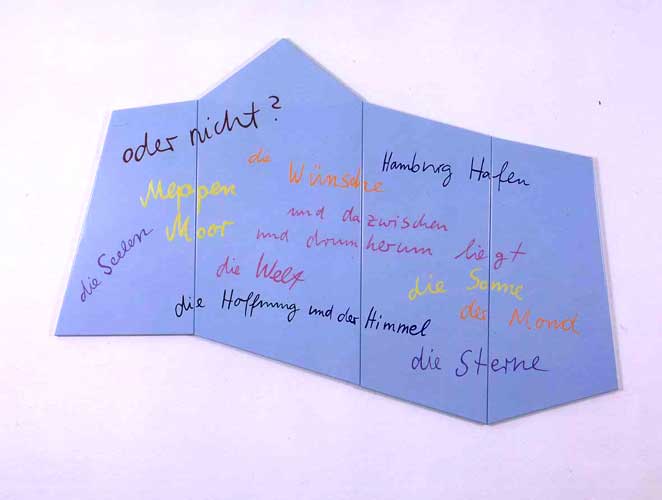 oder nicht?
die Wünsche
Hamburg Hafen
Meppen
Moor
und dazwischen
und drumherum liegt
die Seelen
die Welt
die Sonne
der Mond
die Hoffnung und der Himmel
die Sterne